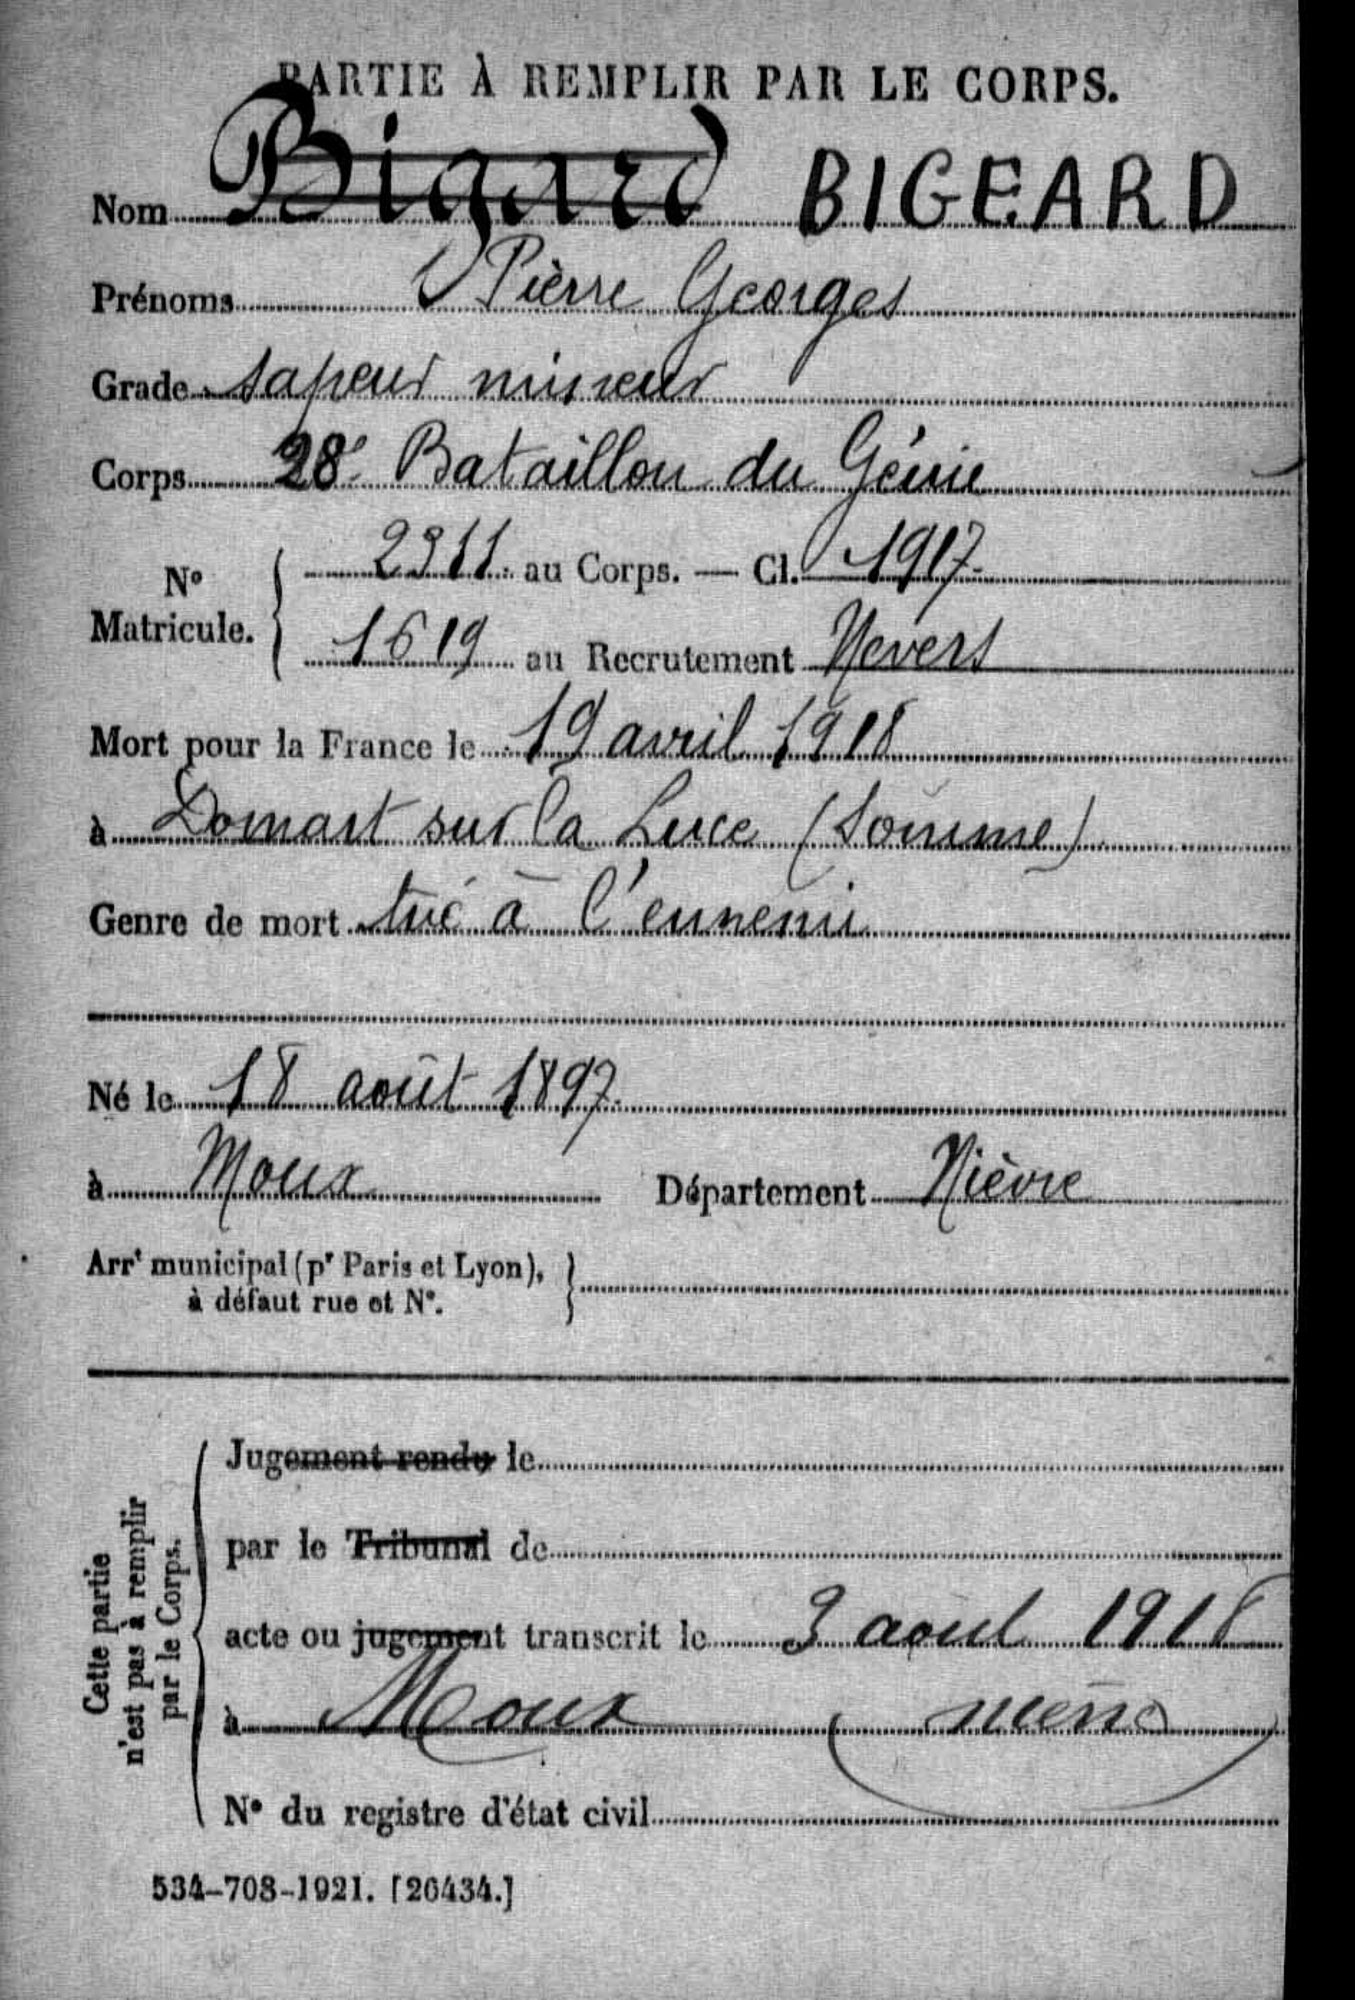 PARTIE À REMPLIR PAR LE CORPS.
Nom Bigard BIGEARD
Prénoms Pierre Georges
Grade sapeur mineur
Corps 28e Bataillon du Génie
No Matricule. { 2311. au Corps. — Cl. 1917.
1619 au Recrutement Nevers
Mort pour la France le 19 avril 1918
à Domart sur la Luce (Somme)
Genre de mort tué à l'ennemi
Né le 18 août 1897.
à Moux Département Nièvre
Arrt municipal (pr Paris et Lyon), }
à défaut rue et N°.
Cette partie
n'est pas à remplir
par le Corps.
Jugement rendu le
par le Tribunal de
acte ou jugement transcrit le 3 août 1918
à Moux
N° du registre d'état civil
534-708-1921. [26434.]